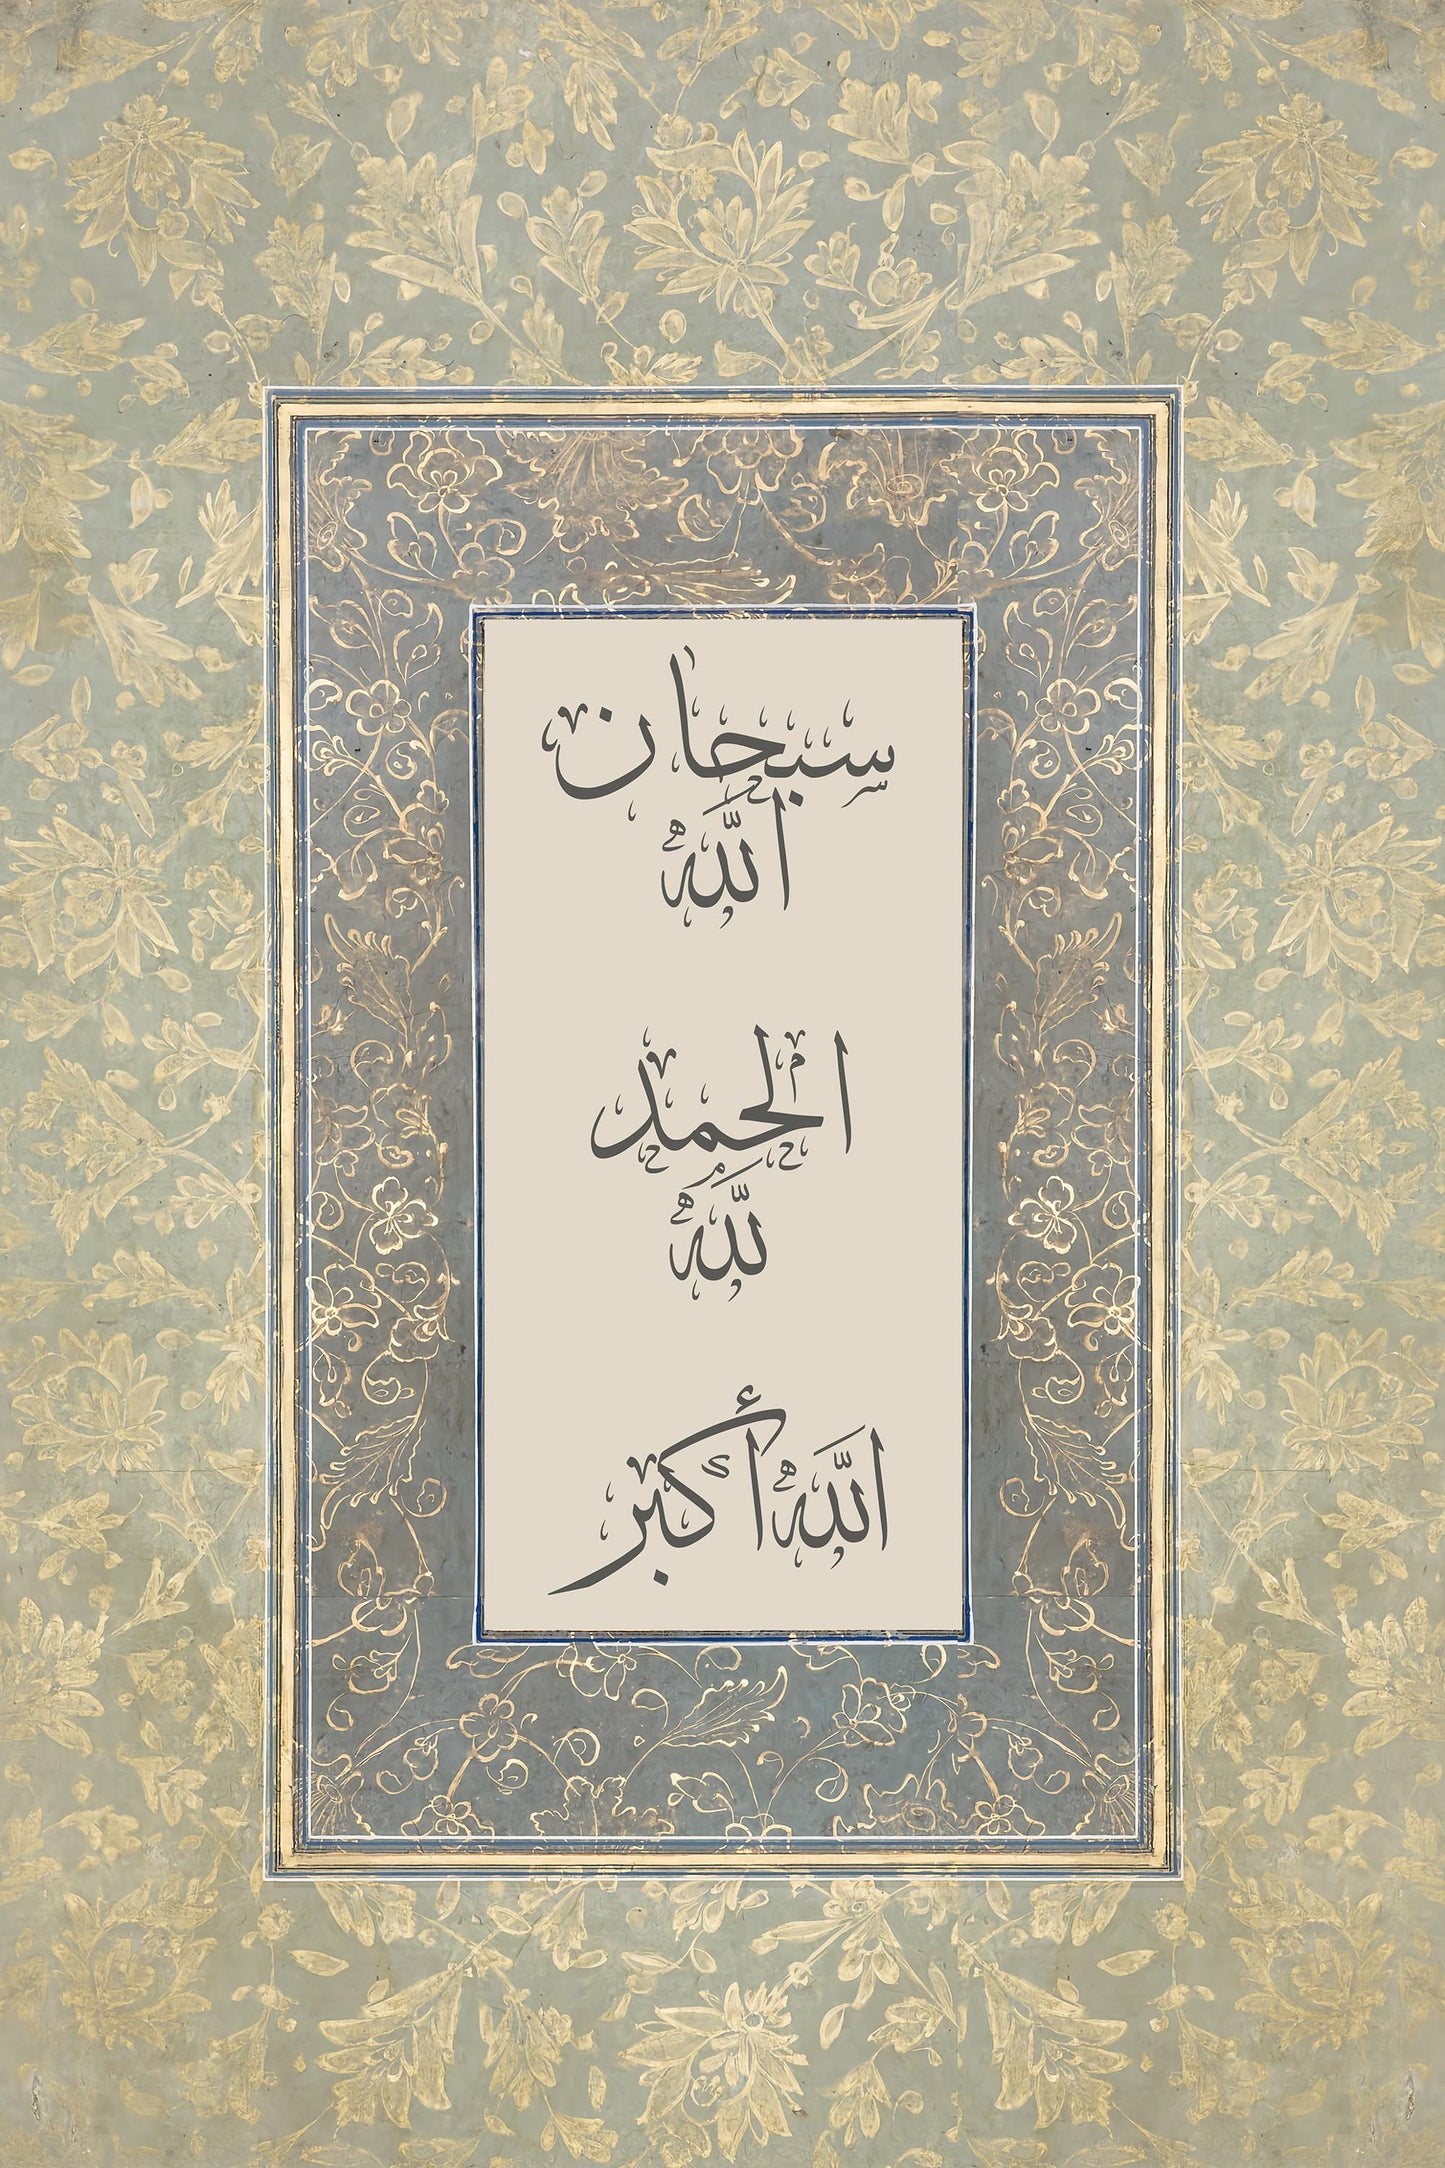 سبحان
اللهُ
الحمد
للهُ
اللهُ أكبر